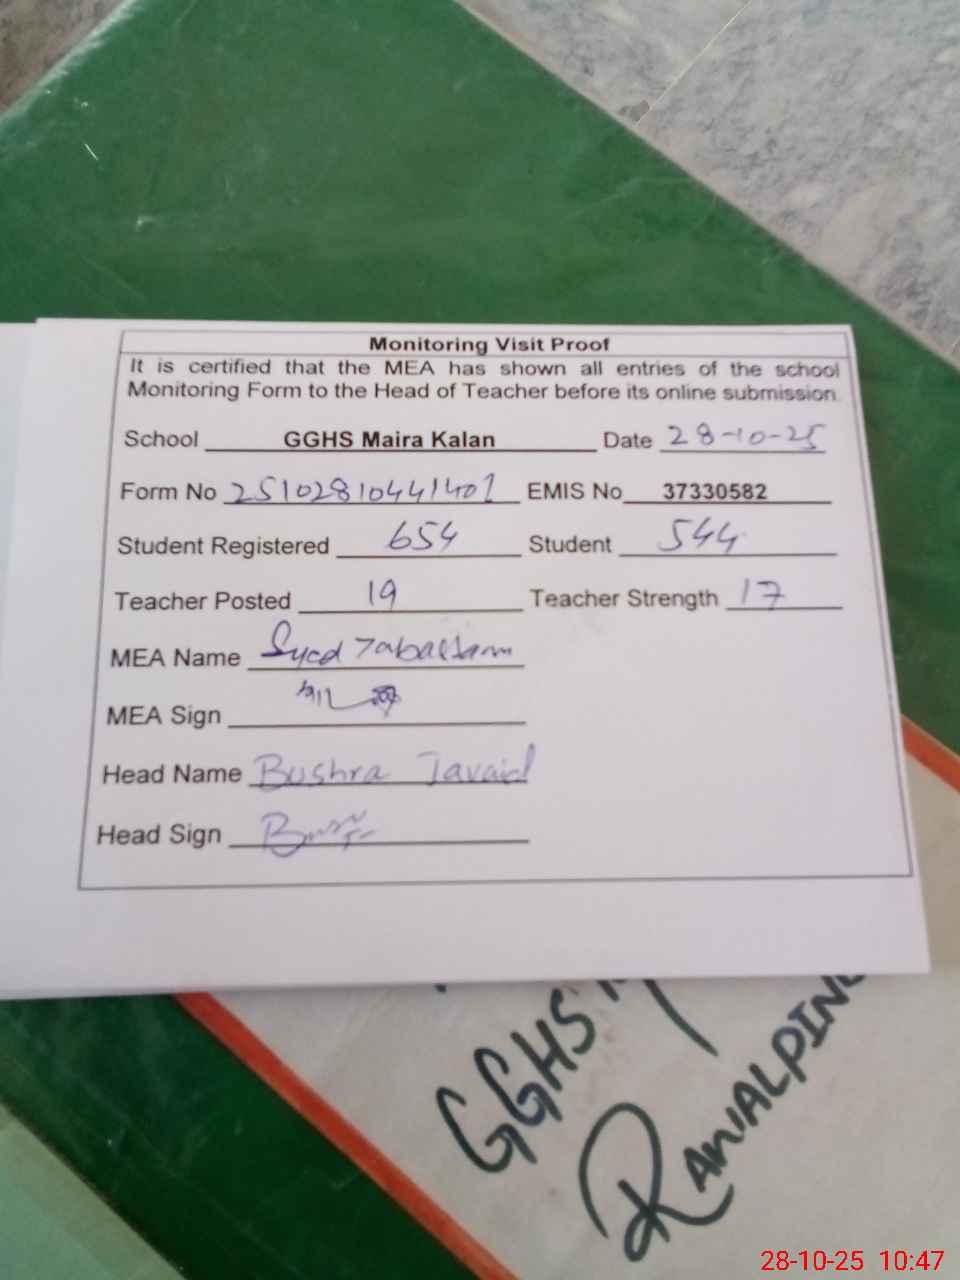 Monitoring Visit Proof
It is certified that the MEA has shown all entries of the school
Monitoring Form to the Head of Teacher before its online submission.
School GGHS Maira Kalan Date 28-10-25
Form No 25102810441401 EMIS No 37330582
Student Registered 654 Student 544
Teacher Posted 19 Teacher Strength 17
MEA Name Syed Tabassam
MEA Sign
Head Name Bushra Javaid
Head Sign
GGHS
28-10-25 10:47